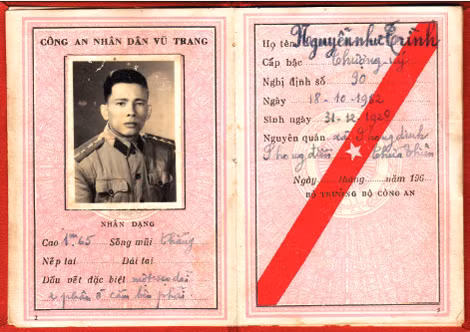 CÔNG AN NHÂN DÂN VŨ TRANG
NHÂN DẠNG
Cao 1m65 Sống mũi thẳng
Nếp tai Dái tai
Dấu vết đặc biệt một sẹo dài
2 phân ở cằm bên phải
2
Họ tên Nguyễn như Trình
Cấp bậc Thượng úy
Nghị định số 90
Ngày 18-10-1962
Sinh ngày 31-12-1929
Nguyên quán xã Phong
Phong điền Thừa Thiên
Ngày tháng năm 196
BỘ TRƯỞNG BỘ CÔNG AN
3